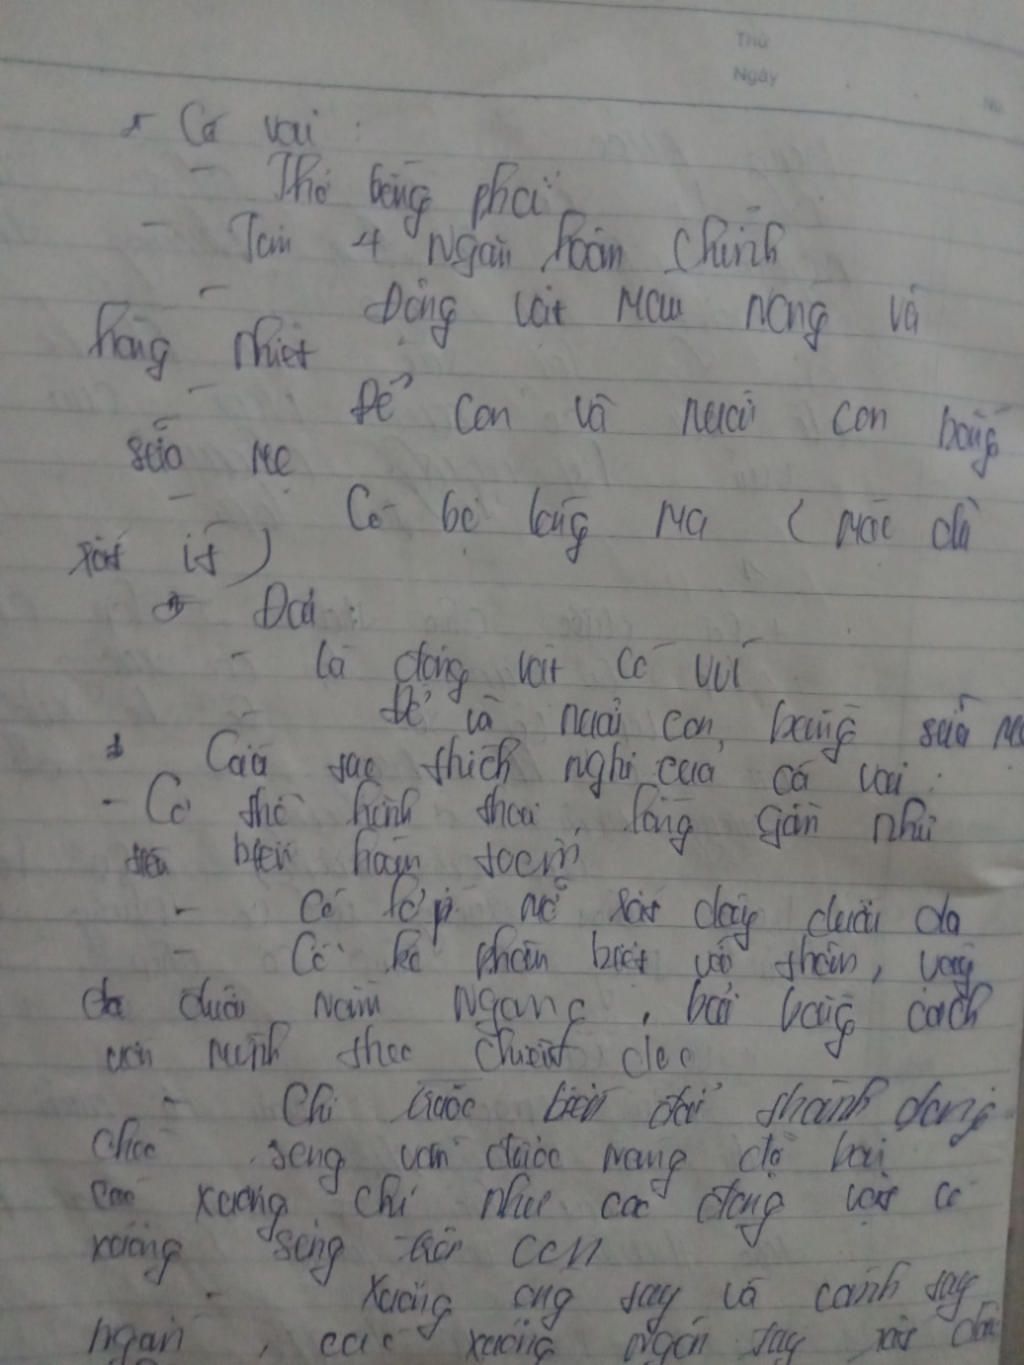 Thứ
Ngày
* Cá voi :
- Thở bằng phổi
- Tim 4 ngăn hoàn chỉnh
- Động vật máu nóng và
hằng nhiệt
- Đẻ con và nuôi con bằng
sữa mẹ
- Có bộ lông mao ( mặc dù
rất ít )
* Dơi :
- Là động vật có vú
Đẻ và nuôi con bằng sữa mẹ
* Cấu tạo thích nghi của cá voi :
- Cơ thể hình thoi, lông gần như
tiêu biến hoàn toàn
- Có lớp mỡ rất dày dưới da
- Cổ phân biệt với thân, vây
đuôi nằm ngang, bơi bằng cách
uốn mình theo chiều dọc
- Chi trước biến đổi thành dạng
chèo song vẫn được nâng đỡ bởi
các xương chi như các động vật có
xương sống trên cạn
- Xương ống tay và cánh tay
ngắn, các xương ngón tay rất dài